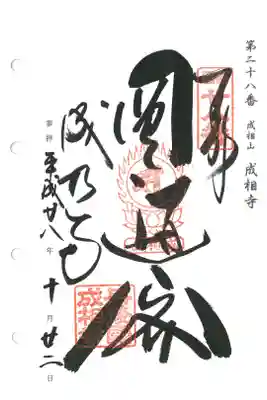 第二十八番 成相山 成相寺
奉拝
圓通閣
成相寺
奉拝 平成廿八年十月廿二日